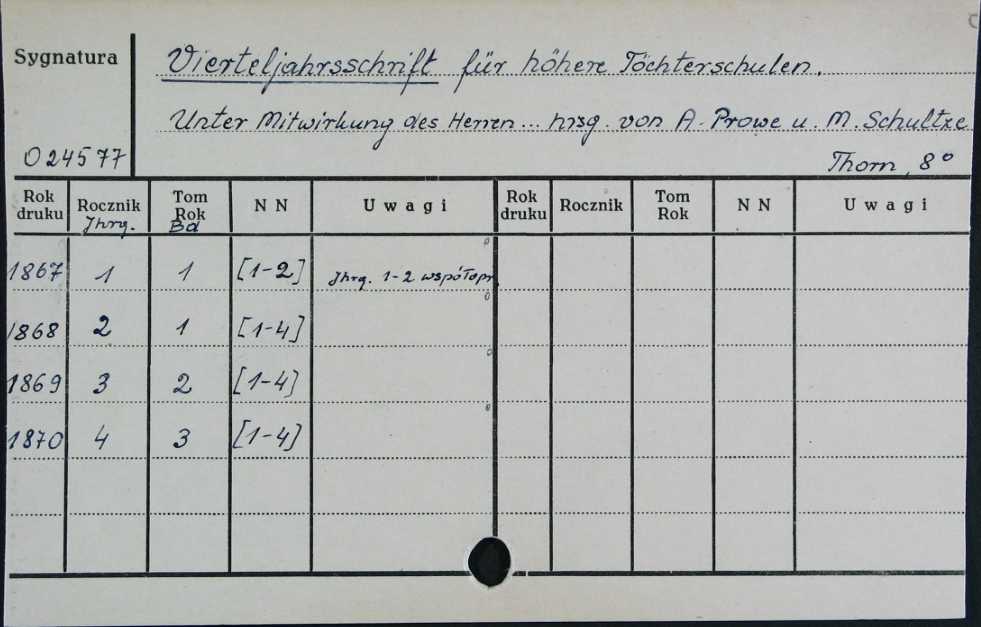 Sygnatura
Vierteljahrsschrift für höhere Töchterschulen.
Unter Mitwirkung des Herren... hrsg. von A. Prowe u. M. Schultze
024577
Thorn, 8°
Rok druku Rocznik Jhrg. Tom Rok Bd NN Uwagi Rok druku Rocznik Tom Rok NN Uwagi
1867 1 1 [1-2] Jhrg. 1-2 współopr.
1868 2 1 [1-4]
1869 3 2 [1-4]
1870 4 3 [1-4]